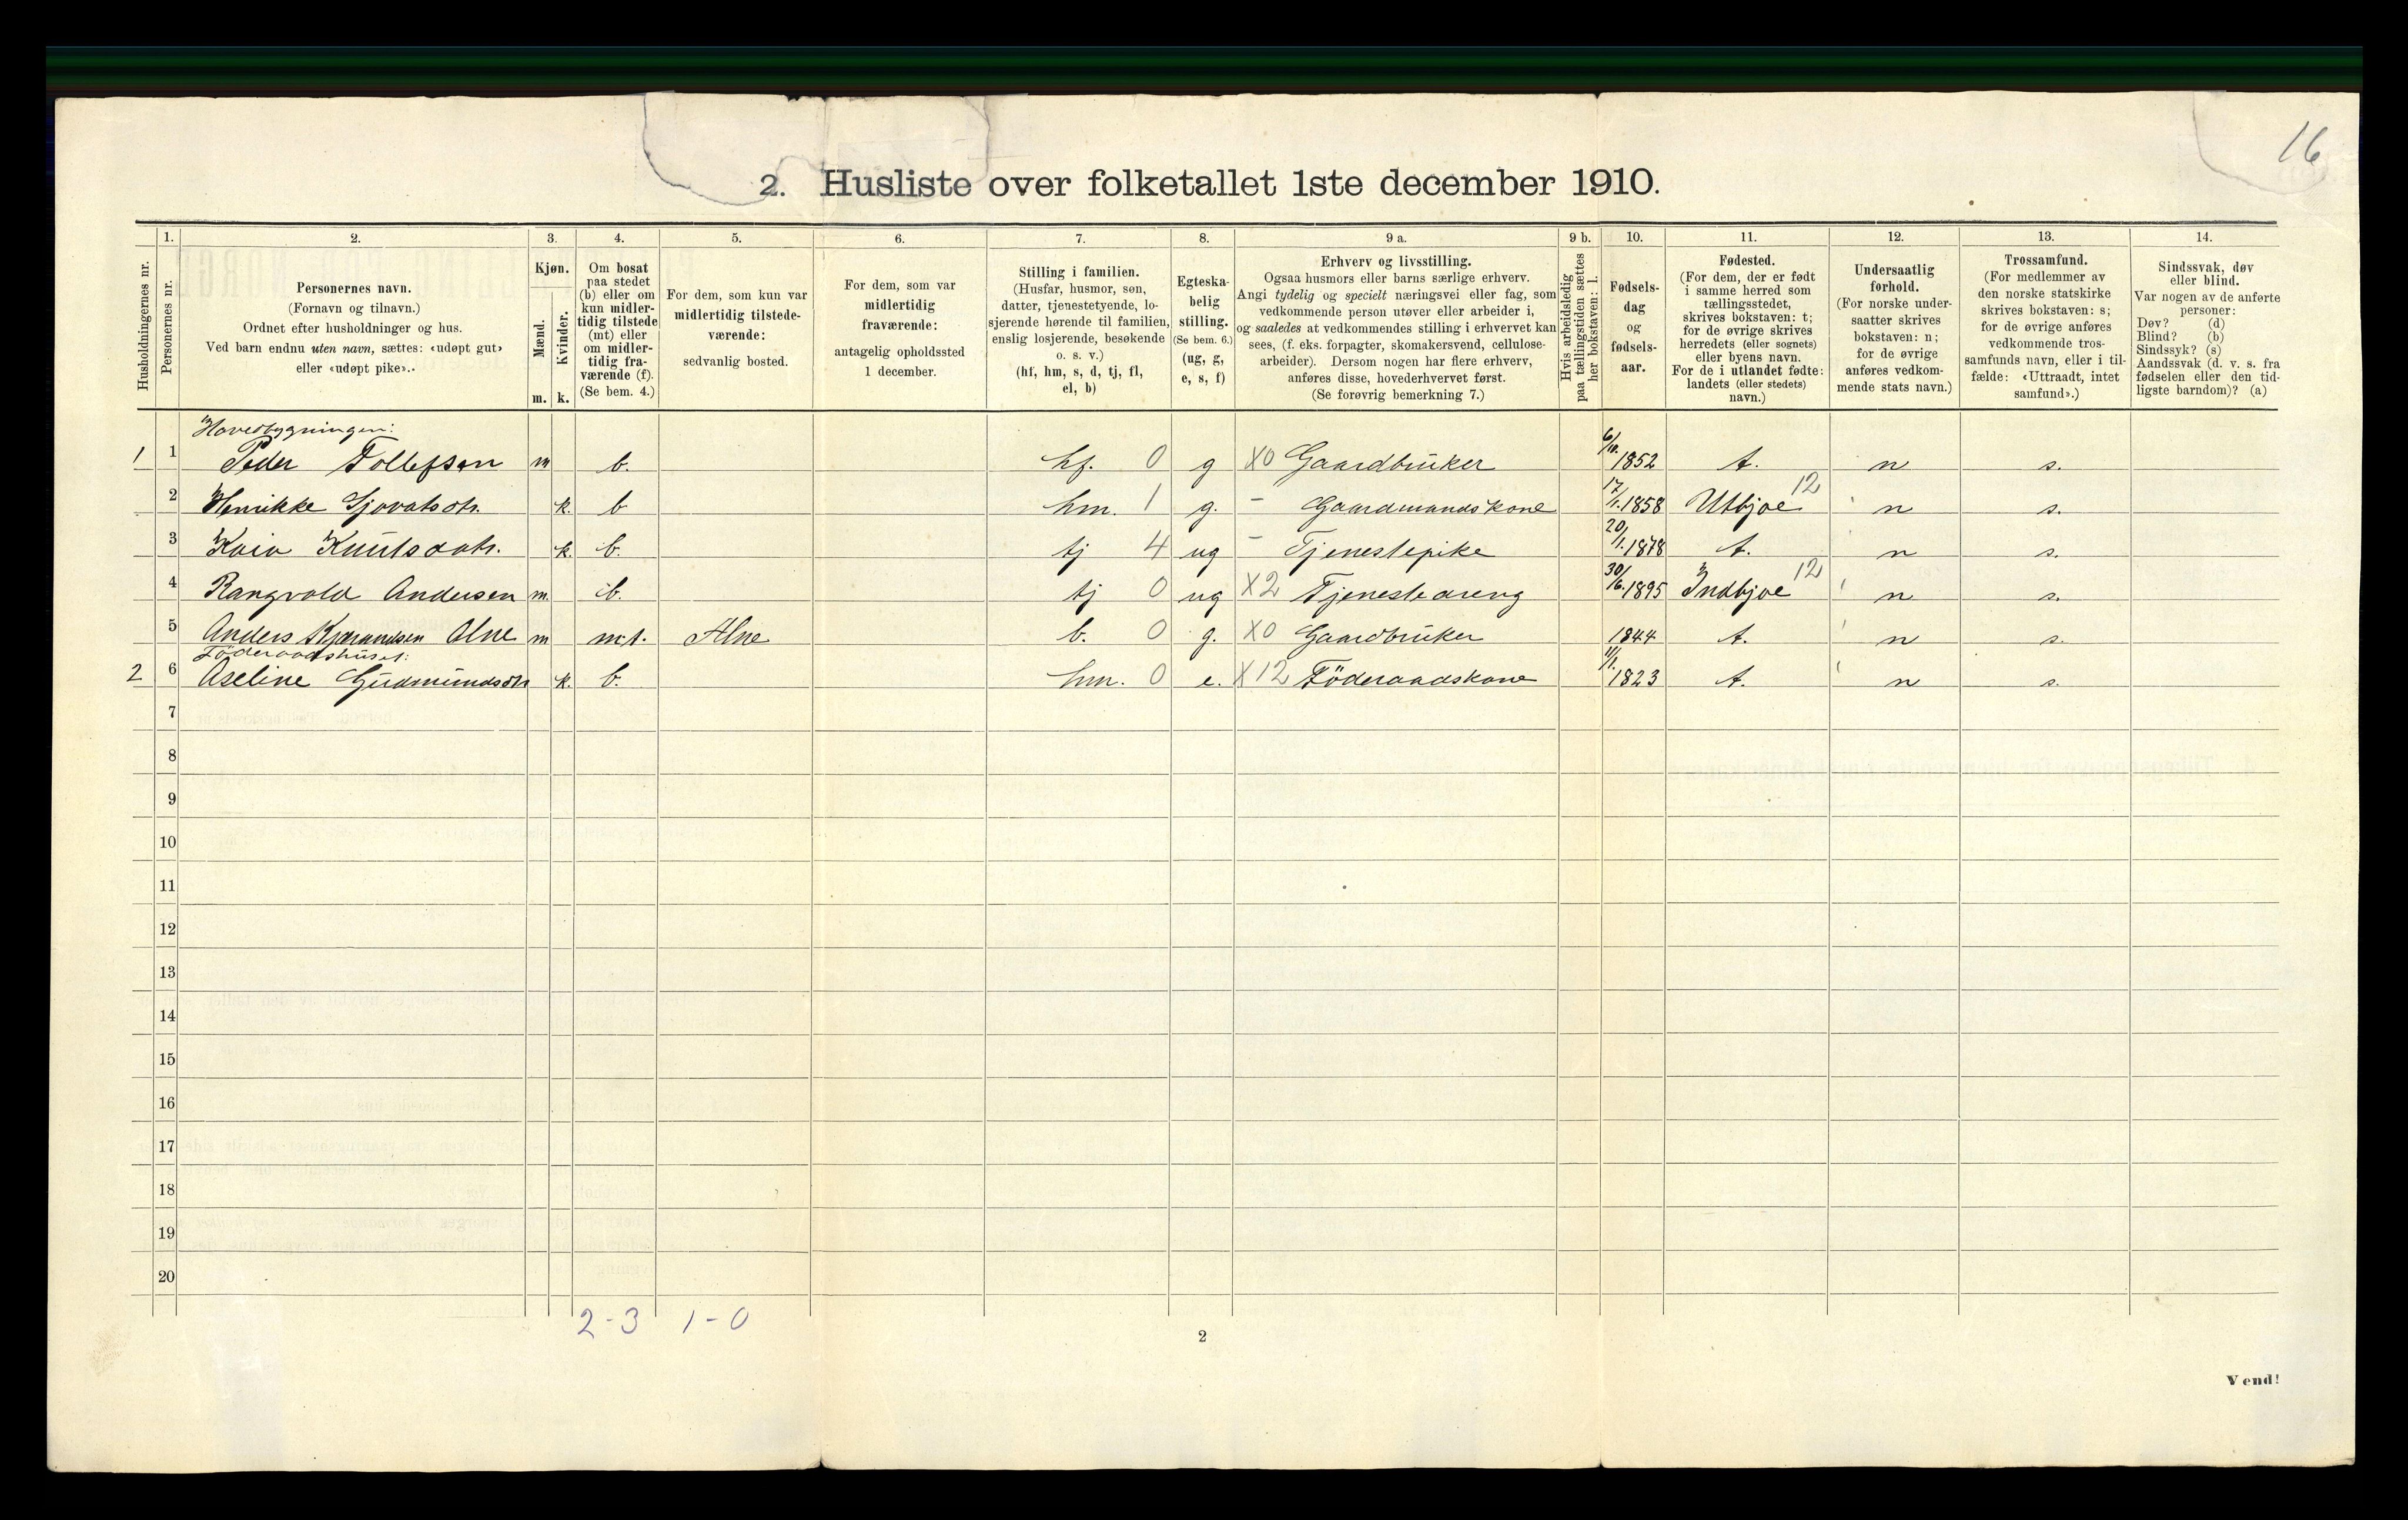 16
2. Husliste over folketallet 1ste december 1910.
1. 2. 3. 4. 5. 6. 7. 8. 9 a. 9 b. 10. 11. 12. 13. 14.
Husholdningernes nr.
Personernes nr.
Personernes navn.
(Fornavn og tilnavn.)
Ordnet efter husholdninger og hus.
Ved barn endnu uten navn, sættes: «udøpt gut»
eller «udøpt pike».
Kjøn.
Mænd.
Kvinder.
m. k.
Om bosat
paa stedet
(b) eller om
kun midler-
tidig tilstede
(mt) eller
om midler-
tidig fra-
værende (f).
(Se bem. 4.)
For dem, som kun var
midlertidig tilstede-
værende:
sedvanlig bosted.
For dem, som var
midlertidig
fraværende:
antagelig opholdssted
1 december.
Stilling i familien.
(Husfar, husmor, søn,
datter, tjenestetyende, lo-
sjerende hørende til familien,
enslig losjerende, besøkende
o. s. v.)
(hf, hm, s, d, tj, fl,
el, b)
Egteska-
belig
stilling.
(Se bem. 6.)
(ug, g,
e, s, f)
Erhverv og livsstilling.
Ogsaa husmors eller barns særlige erhverv.
Angi tydelig og specielt næringsvei eller fag, som
vedkommende person utøver eller arbeider i,
og saaledes at vedkommendes stilling i erhvervet kan
sees, (f. eks. forpagter, skomakersvend, cellulose-
arbeider). Dersom nogen har flere erhverv,
anføres disse, hovederhvervet først.
(Se forøvrig bemerkning 7.)
Hvis arbeidsledig
paa tællingstiden sættes
her bokstaven: l.
Fødsels-
dag
og
fødsels-
aar.
Fødested.
(For dem, der er født
i samme herred som
tællingsstedet,
skrives bokstaven: t;
for de øvrige skrives
herredets (eller sognets)
eller byens navn.
For de i utlandet fødte:
landets (eller stedets)
navn.)
Undersaatlig
forhold.
(For norske under-
saatter skrives
bokstaven: n;
for de øvrige
anføres vedkom-
mende stats navn.)
Trossamfund.
(For medlemmer av
den norske statskirke
skrives bokstaven: s;
for de øvrige anføres
vedkommende tros-
samfunds navn, eller i til-
fælde: «Uttraadt, intet
samfund».)
Sindssvak, døv
eller blind.
Var nogen av de anførte
personer:
Døv? (d)
Blind? (b)
Sindssyk? (s)
Aandssvak (d. v. s. fra
fødselen eller den tid-
ligste barndom)? (a)
Hovedbygningen:
1 1 Peder Tollefsen m b. hf. 0 g X0 Gaardbruker 6/10. 1852 t. n s.
2 Henrikke k. b hm. 1 g. - Gaardmandskone 17/1. 1858 Utbjoe 12 n s.
3 Knutsdatr. k. b. tj 4 ug - Tjenestepike 20/1. 1878 t. n s.
4 Rangvold Andersen m. b. tj 0 ug X2 Tjenestedreng 30/6. 1895 Indbjoe 12 n s.
5 Anders Alne m m.t. Alne b. 0 g. X0 Gaardbruker 1844 t. n s.
Föderaadshuset:
2 6 Aseline Gudmundsdtr k. b. hm. 0 e. X12 Föderaadskone 11/1. 1823 t. n s.
7
8
9
10
11
12
13
14
15
16
17
18
19
20
2-3 1-0
2
Vend!